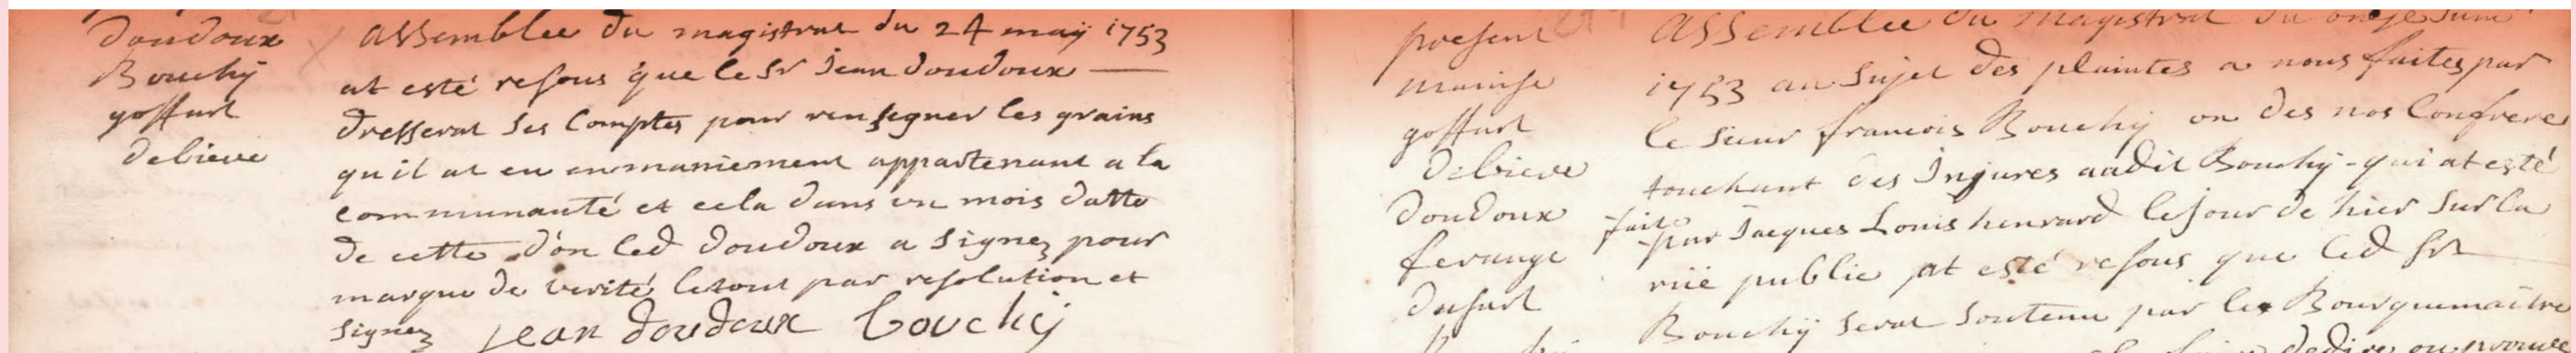 Doudoux
Bouchÿ
goffart
debieve
assemblee du magistrat du 24 maÿ 1753
at esté resous que le Sr Jean doudoux
dresserat ses Comptes pour rensegner les grains
qu il at eu enmaniement appartenant a la
communauté et cela dans un mois datte
de cette d'on led doudoux a signez pour
marque de verité letout par resolution et
signez jean doudoux bouchÿ
present
goffart
debieve
doudoux
ferange
dufart
assemblee du magistrat du onze Juin
1753 au sujet des plaintes a nous faites par
le sieur francois Bouchÿ on des nos Confrere
touchant des Injures audit Bouchÿ - qui at esté
fait par Jacques Louis henrard le jour de hier sur la
riie publie at esté resous que led Sr
Bouchÿ serat soutenu par les Bourguemaitre
dedire ou prouve